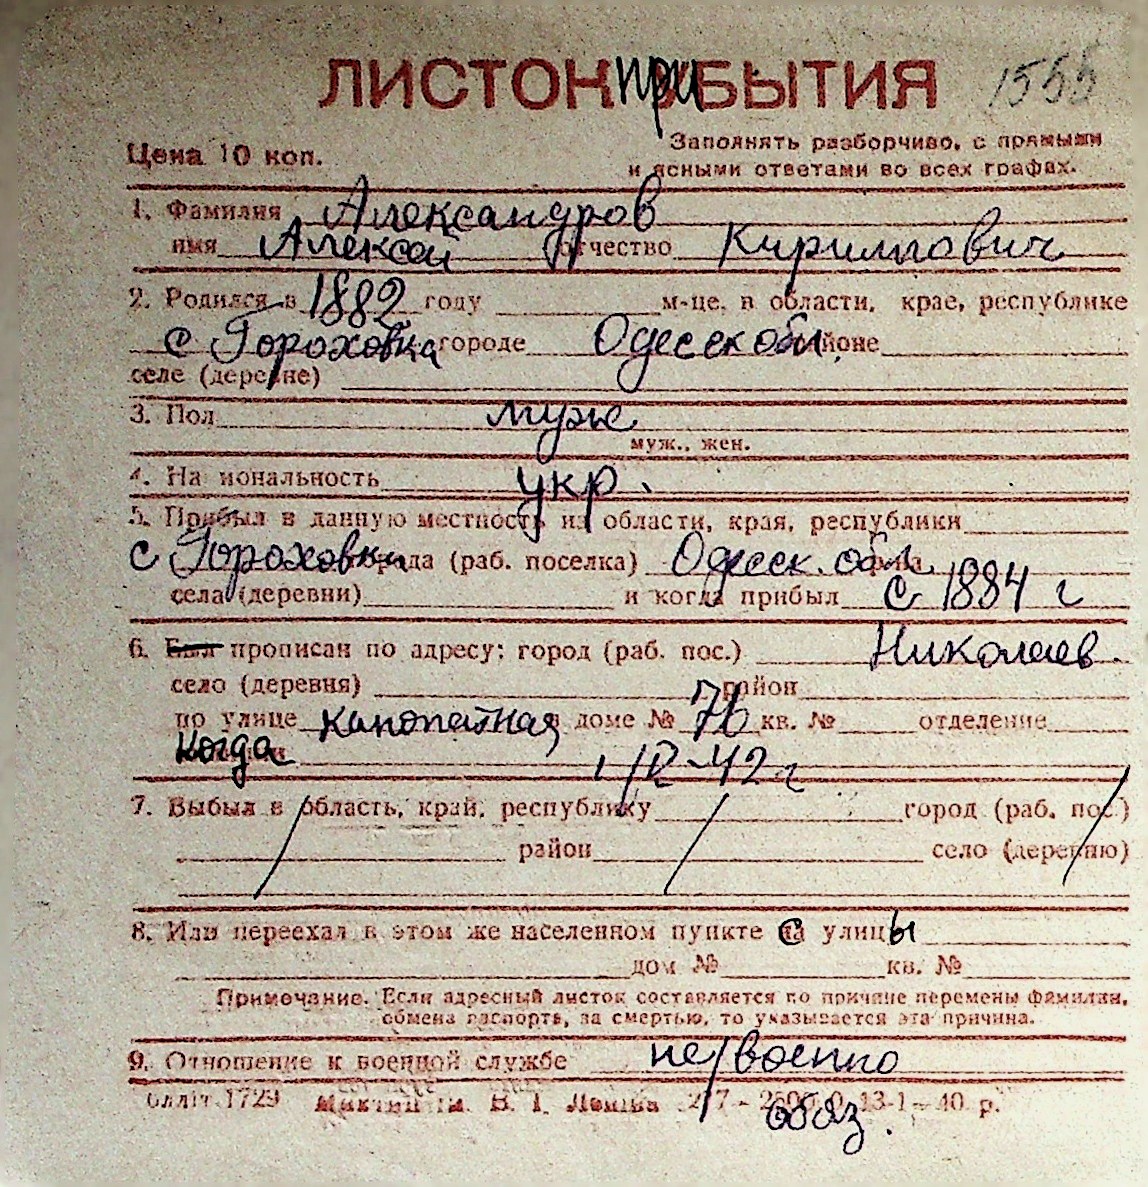 ЛИСТОК прИБЫТИЯ 1555
Цена 10 коп.
Заполнять разборчиво, с прямыми
и ясными ответами во всех графах.
1. Фамилия Александров
имя Алексей отчество Кириллович
2. Родился в 1882 году м-це, в области, крае, республике
с Гороховка городе Одесск обл. районе
селе (деревне)
3. Пол муж
муж., жен.
4. Национальность укр.
5. Прибыл в данную местность из области, края, республики
с Гороховки города (раб. поселка) Одесск. обл
села (деревни) и когда прибыл с 1884 г
6. Был прописан по адресу: город (раб. пос.) Николаев.
село (деревня) район
по улице канопатная в доме № 76 кв. № отделение
когда 42 г
7. Выбыл в область, край, республику город (раб. пос.)
район село (деревню)
8. Или переехал в этом же населенном пункте с улицы
дом № кв. №
Примечание. Если адресный листок составляется по причине перемены фамилии,
обмена паспорта, за смертью, то указывается эта причина.
9. Отношение к военной службе не/военно
обліт 1729 13-1-40 р.
обяз.